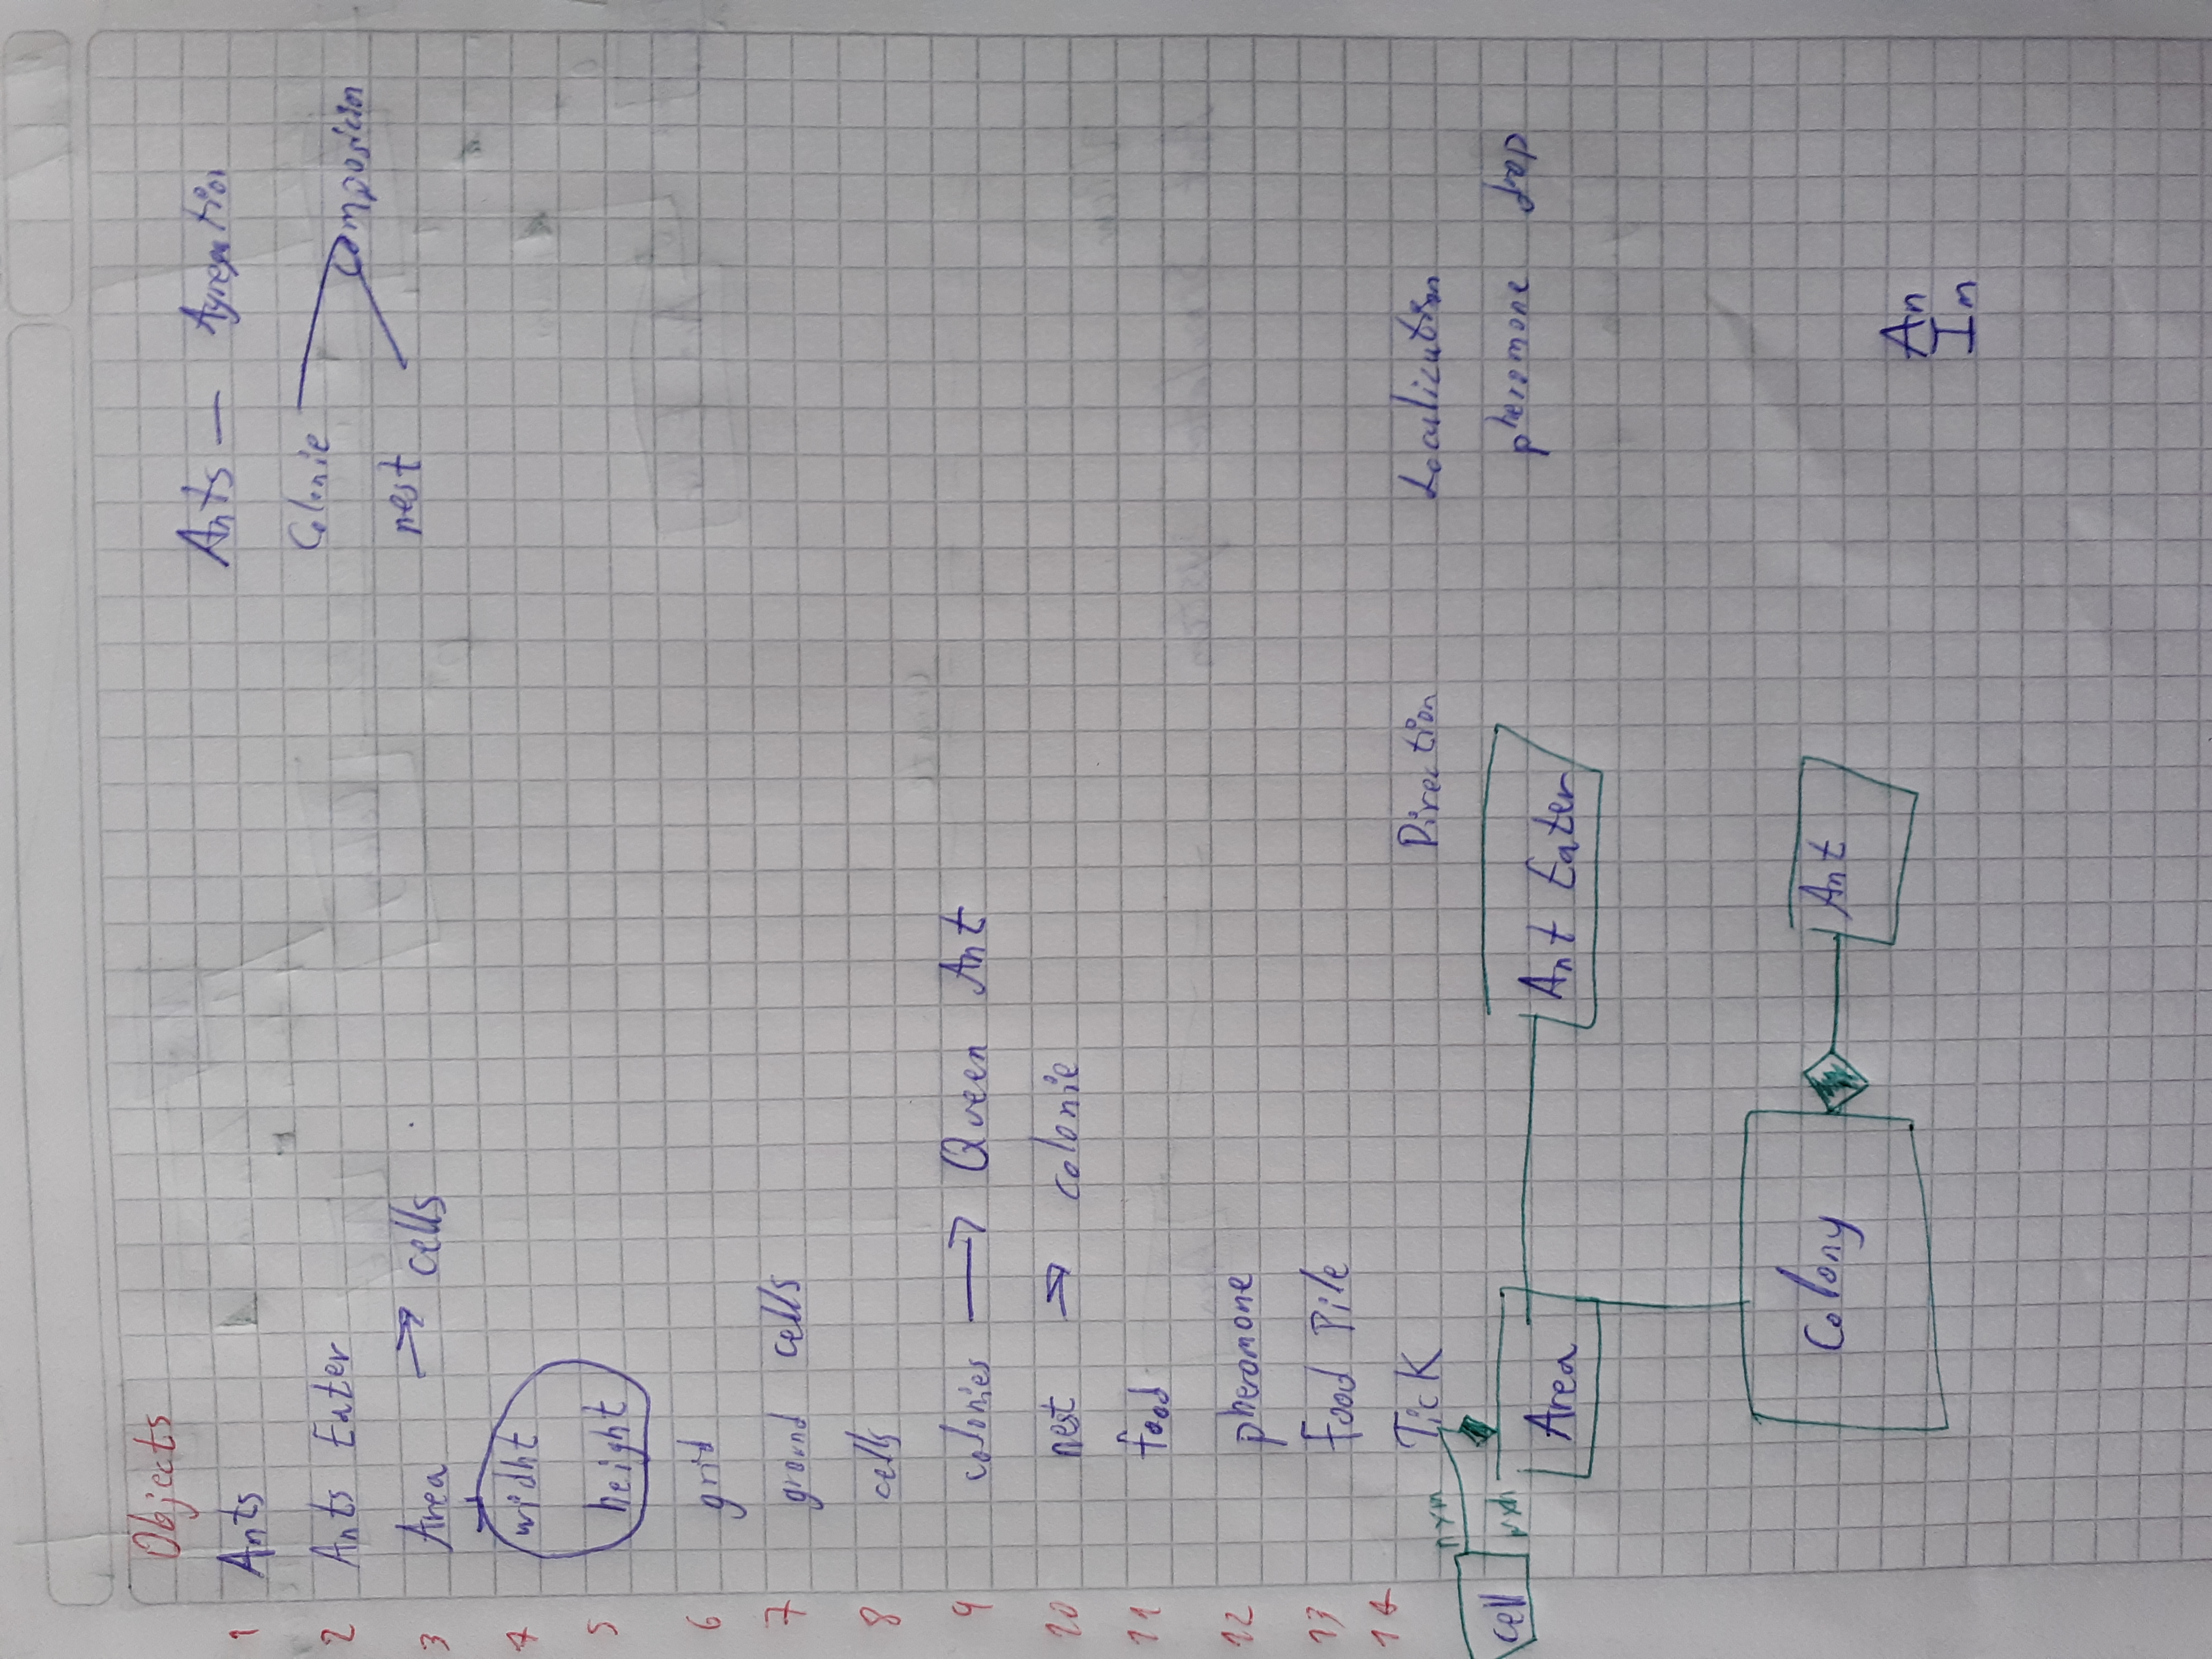 Objects
1 Ants
2 Ants Eater
3 Area → cells
4 widht
5 height
6 grid
7 ground cells
8 cells
9 colonies → Queen Ant
10 nest → colonie
11 food
12 pheromone
13 Food Pile
14 Tick
Ants — Agregation
Colonie
Composicion
nest
Direction
Localization
pheromone drop
nxm
wxh
cell
Area
Ant Eater
Colony
Ant
An
Im